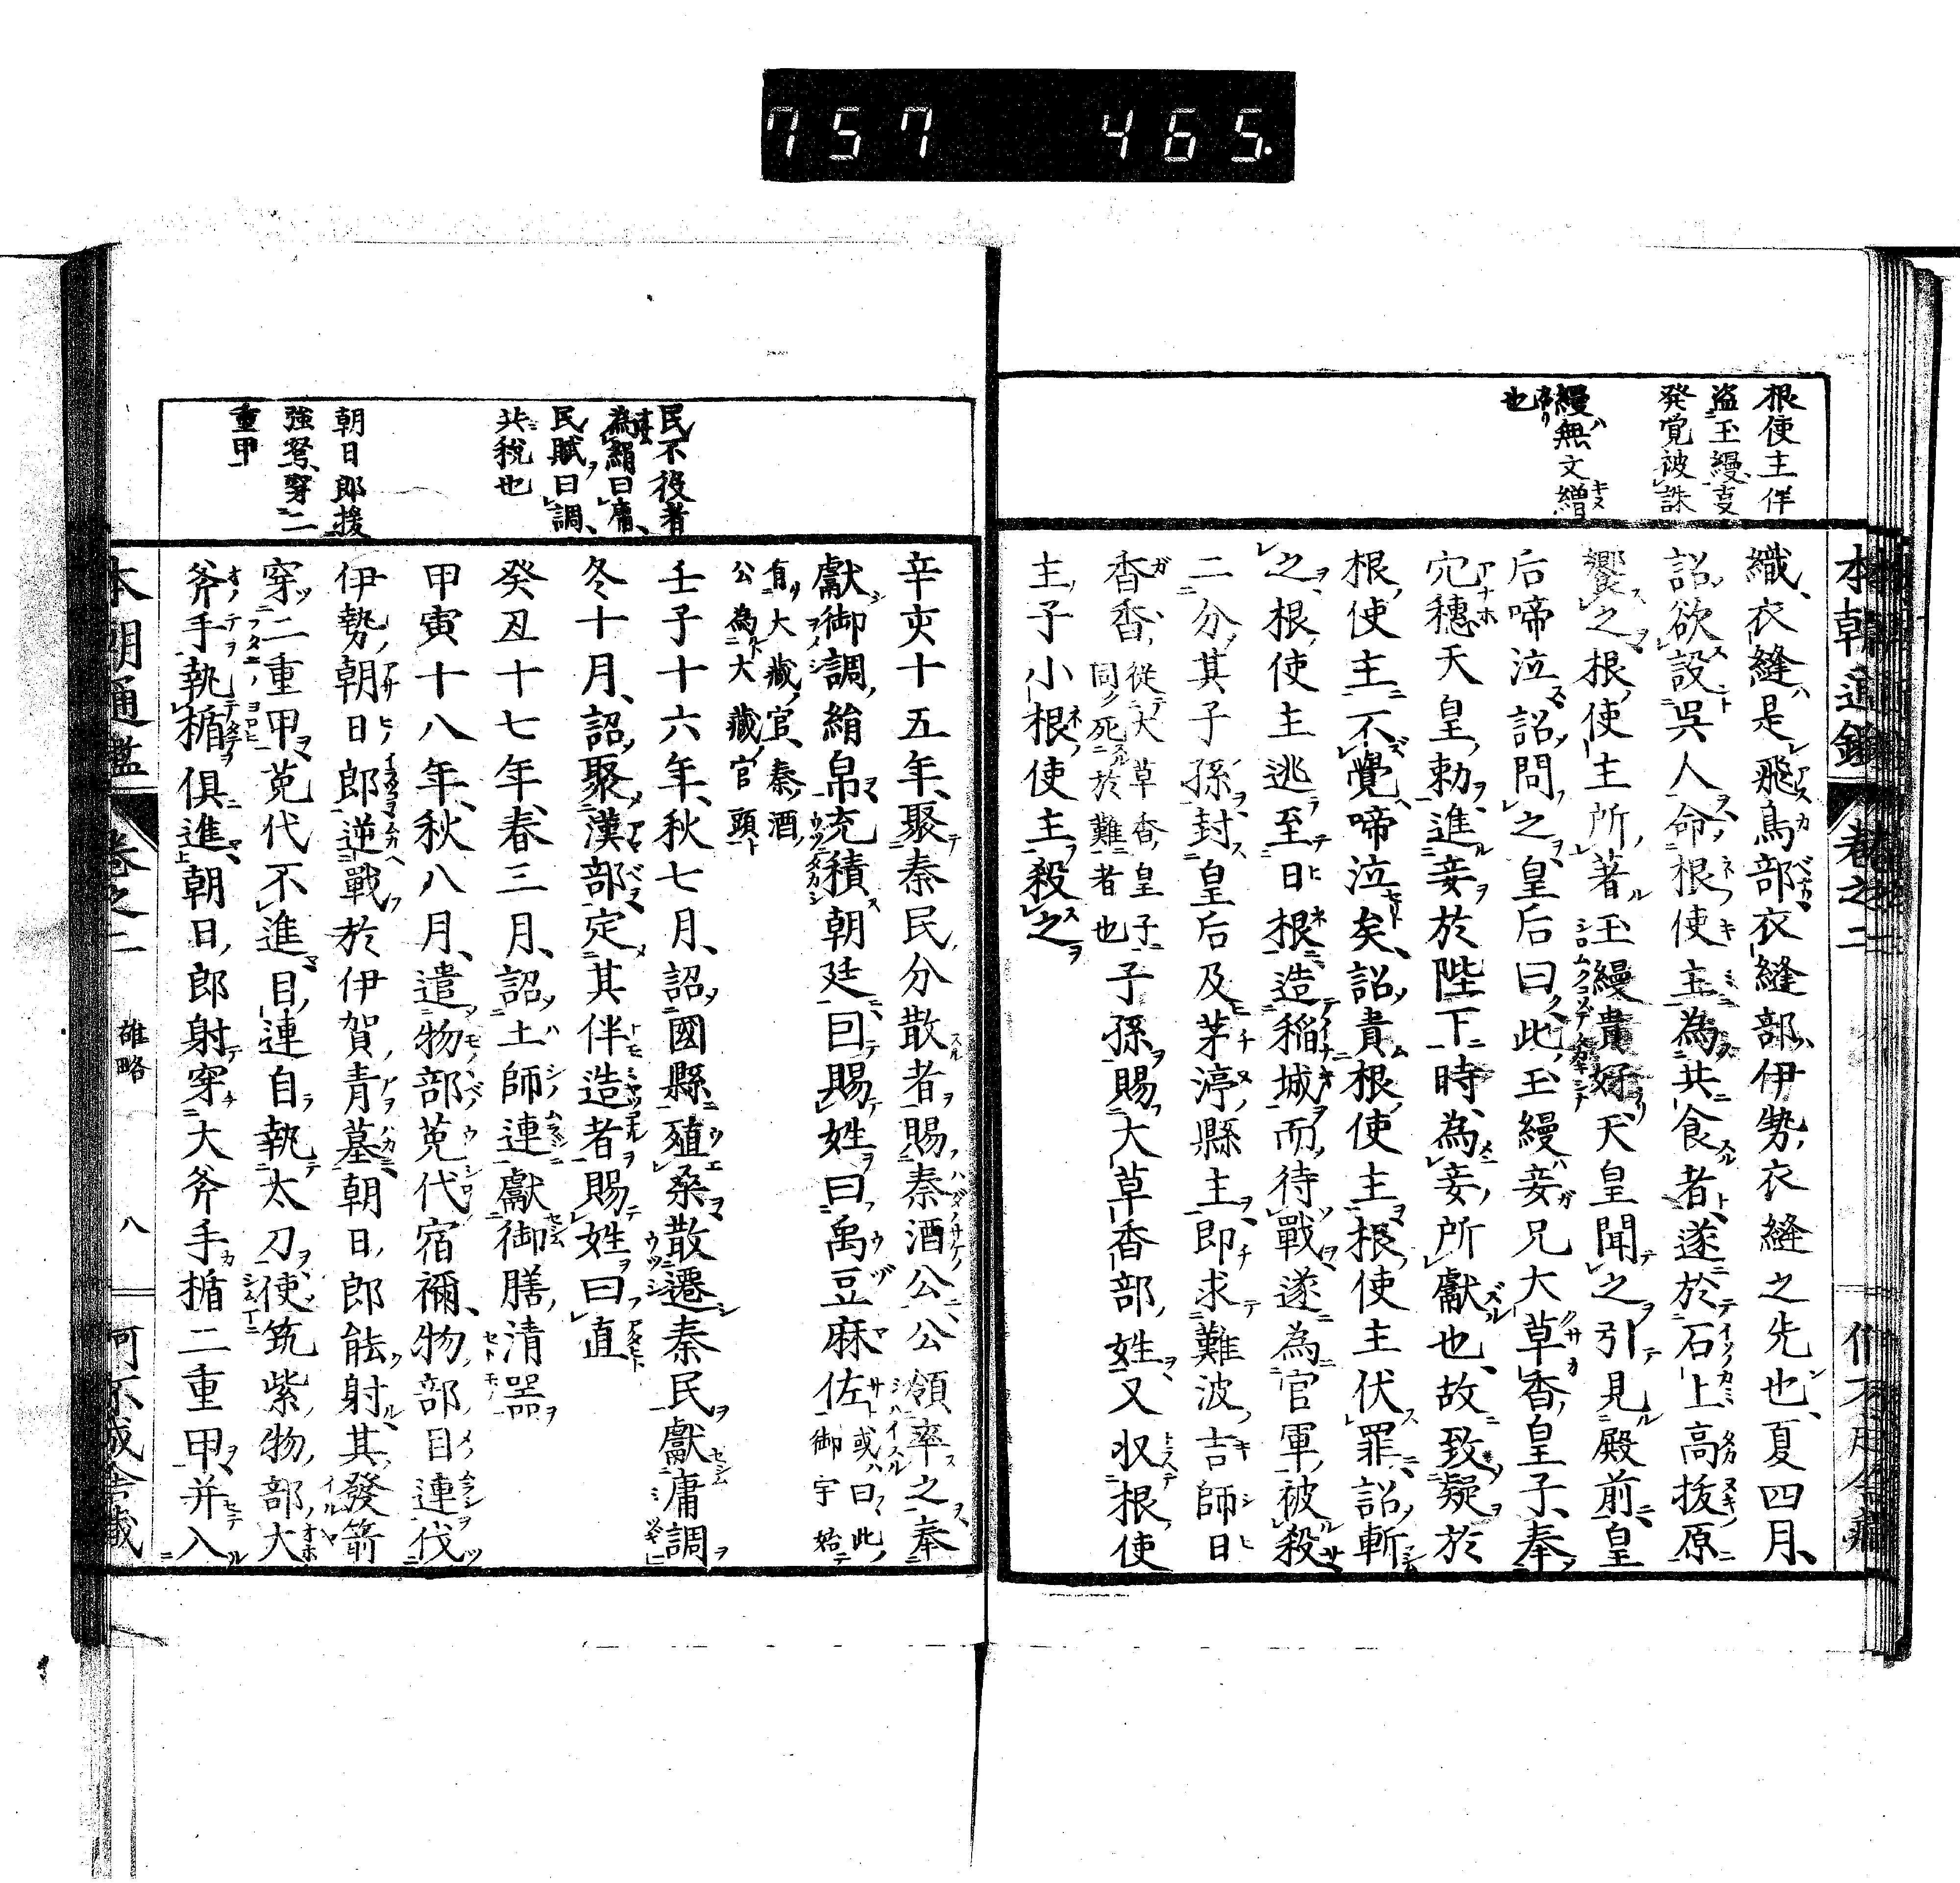 757 465.
根使主佯
盗玉縵支
発覚被誅
縵無文繒
也
織衣縫是飛鳥部衣縫部伊勢衣縫之先也夏四月
詔欲設呉人命根使主為共食者遂於石上高抜原
饗之根使主所著玉縵貴好天皇聞之引見殿前皇
后啼泣詔問之皇后曰此玉縵妾兄大草香皇子奉
穴穂天皇勅進妾於陛下時為妾所獻也故致疑於
根使主不覺啼泣矣詔責根使主根使主伏罪詔斬
之根使主逃至日根造稲城而待戰遂為官軍被殺
二分其子孫封皇后及茅渟縣主即求難波吉師日
香香
從大草香皇子
同死於難者也
子孫賜大草香部姓又収根使
主子小根使主殺之
民不役者
為絹曰庸
民賦曰調
共税也
朝日郎援
強弩穿二
重甲
辛亥十五年聚秦民分散者賜秦酒公公領率之奉
獻御調絹帛充積朝廷因賜姓曰禹豆麻佐
或曰此
御宇始
有大藏官秦酒
公為大藏官頭
壬子十六年秋七月詔國縣殖桑散遷秦民獻庸調
冬十月詔聚漢部定其伴造者賜姓曰直
癸丑十七年春三月詔土師連獻御膳清器
甲寅十八年秋八月遣物部莵代宿禰物部目連伐
伊勢朝日郎逆戰於伊賀青墓朝日郎能射其發箭
穿二重甲莵代不進目連自執太刀使筑紫物部大
斧手執楯俱進朝日郎射穿大斧手楯二重甲并入
本朝通鑑 卷之二 雄略 八